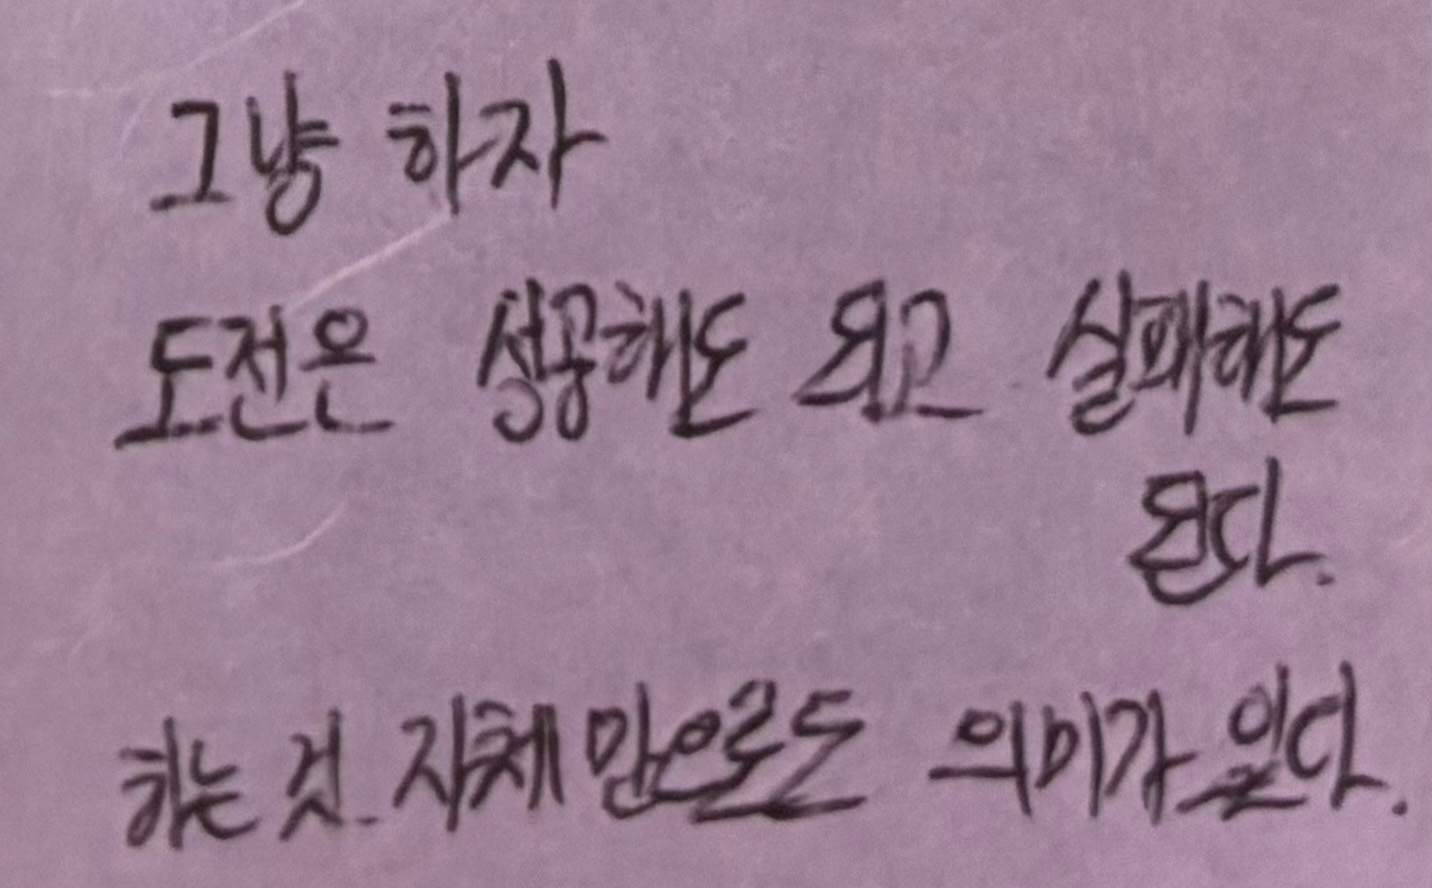 그냥 하자
도전은 성공해도 되고 실패해도
된다.
하는 것 자체만으로도 의미가 있다.